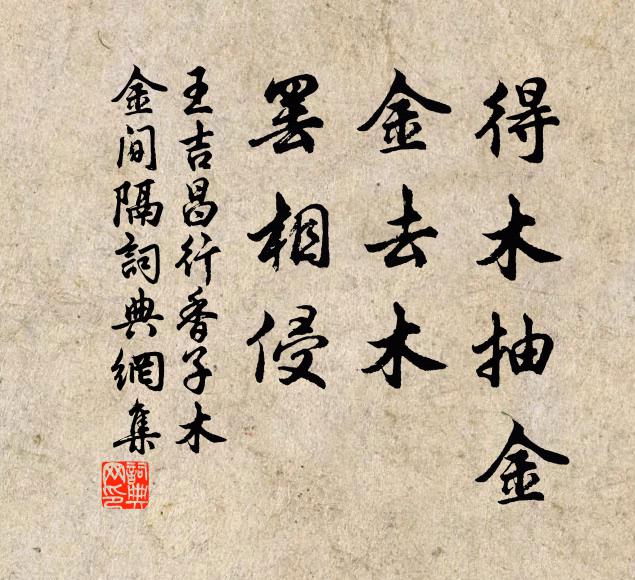 得木抽金
金去木
罢相侵
王吉昌行香子木
金间隔詞典網集
詞典网印